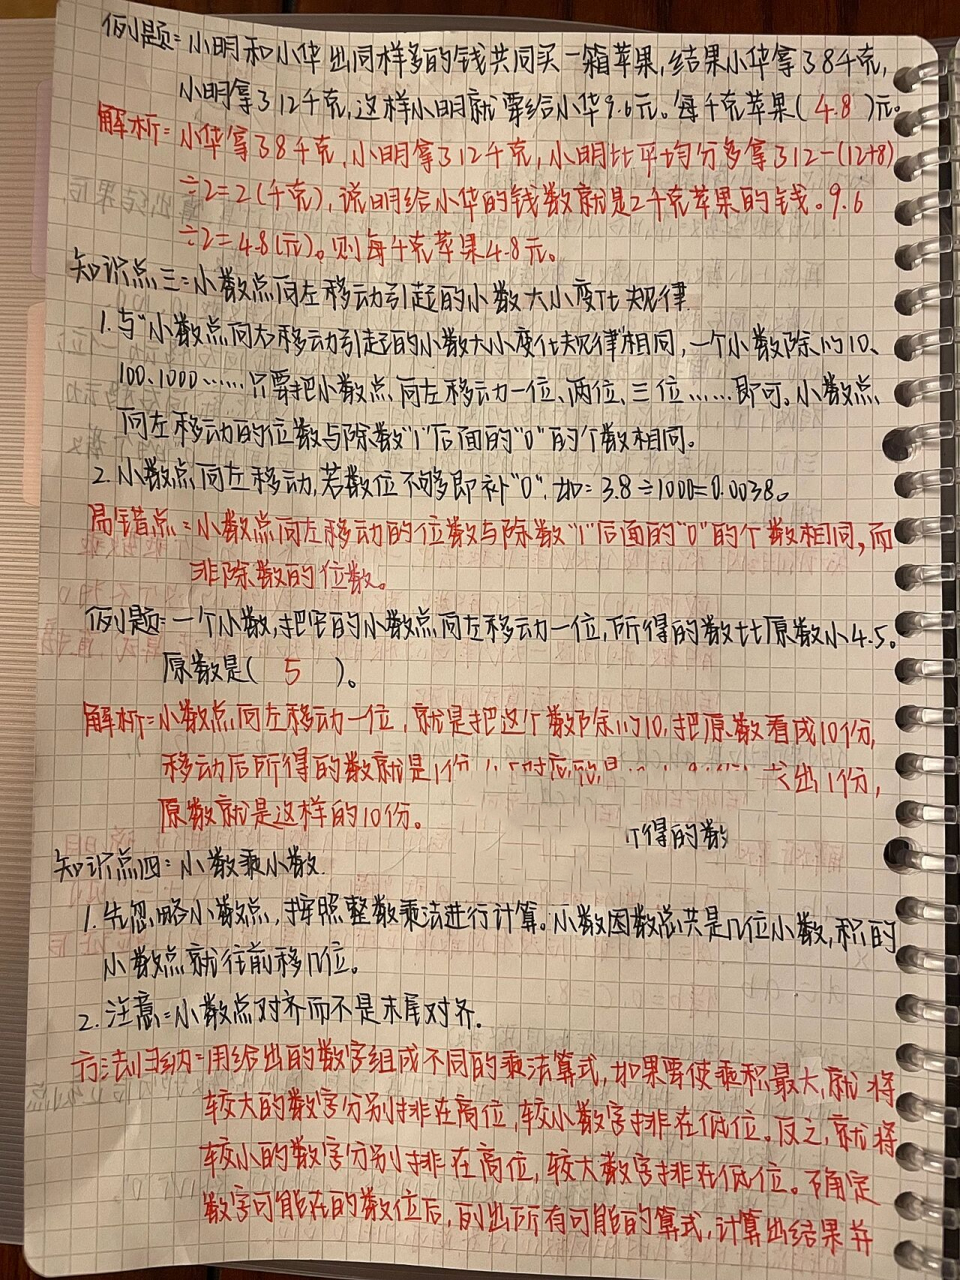 例题:小明和小华出同样多的钱共同买一箱苹果,结果小华拿了8千克,
小明拿了12千克,这样小明就要给小华9.6元。每千克苹果( 4.8 )元。
解析:小华拿了8千克,小明拿了12千克,小明比平均分多拿了12-(12+8)
÷2=2(千克),说明给小华的钱数就是2千克苹果的钱。9.6
÷2=4.8(元)。则每千克苹果4.8元。
知识点三:小数点向左移动引起的小数大小变化规律
1.与“小数点向右移动引起的小数大小变化规律”相同,一个小数除以10、
100、1000……只要把小数点向左移动一位、两位、三位……即可。小数点
向左移动的位数与除数“1”后面的“0”的个数相同。
2.小数点向左移动,若数位不够即补“0”.如:3.8÷1000=0.0038。
易错点:小数点向左移动的位数与除数“1”后面的“0”的个数相同,而
非除数的位数。
例题:一个小数,把它的小数点向左移动一位,所得的数比原数小4.5。
原数是( 5 )。
解析:小数点向左移动一位,就是把这个数除以10,把原数看成10份,
移动后所得的数就是1份 求出1份,
原数就是这样的10份。
得的数
知识点四:小数乘小数.
1.先忽略小数点,按照整数乘法进行计算。小数因数总共是几位小数,积的
小数点就往前移几位。
2.注意:小数点对齐而不是末尾对齐.
方法归纳:用给出的数字组成不同的乘法算式,如果要使乘积最大,就将
较大的数字分别排在高位,较小数字排在低位。反之,就将
较小的数字分别排在高位,较大数字排在低位。确定
数字可能在的数位后,列出所有可能的算式,计算出结果并